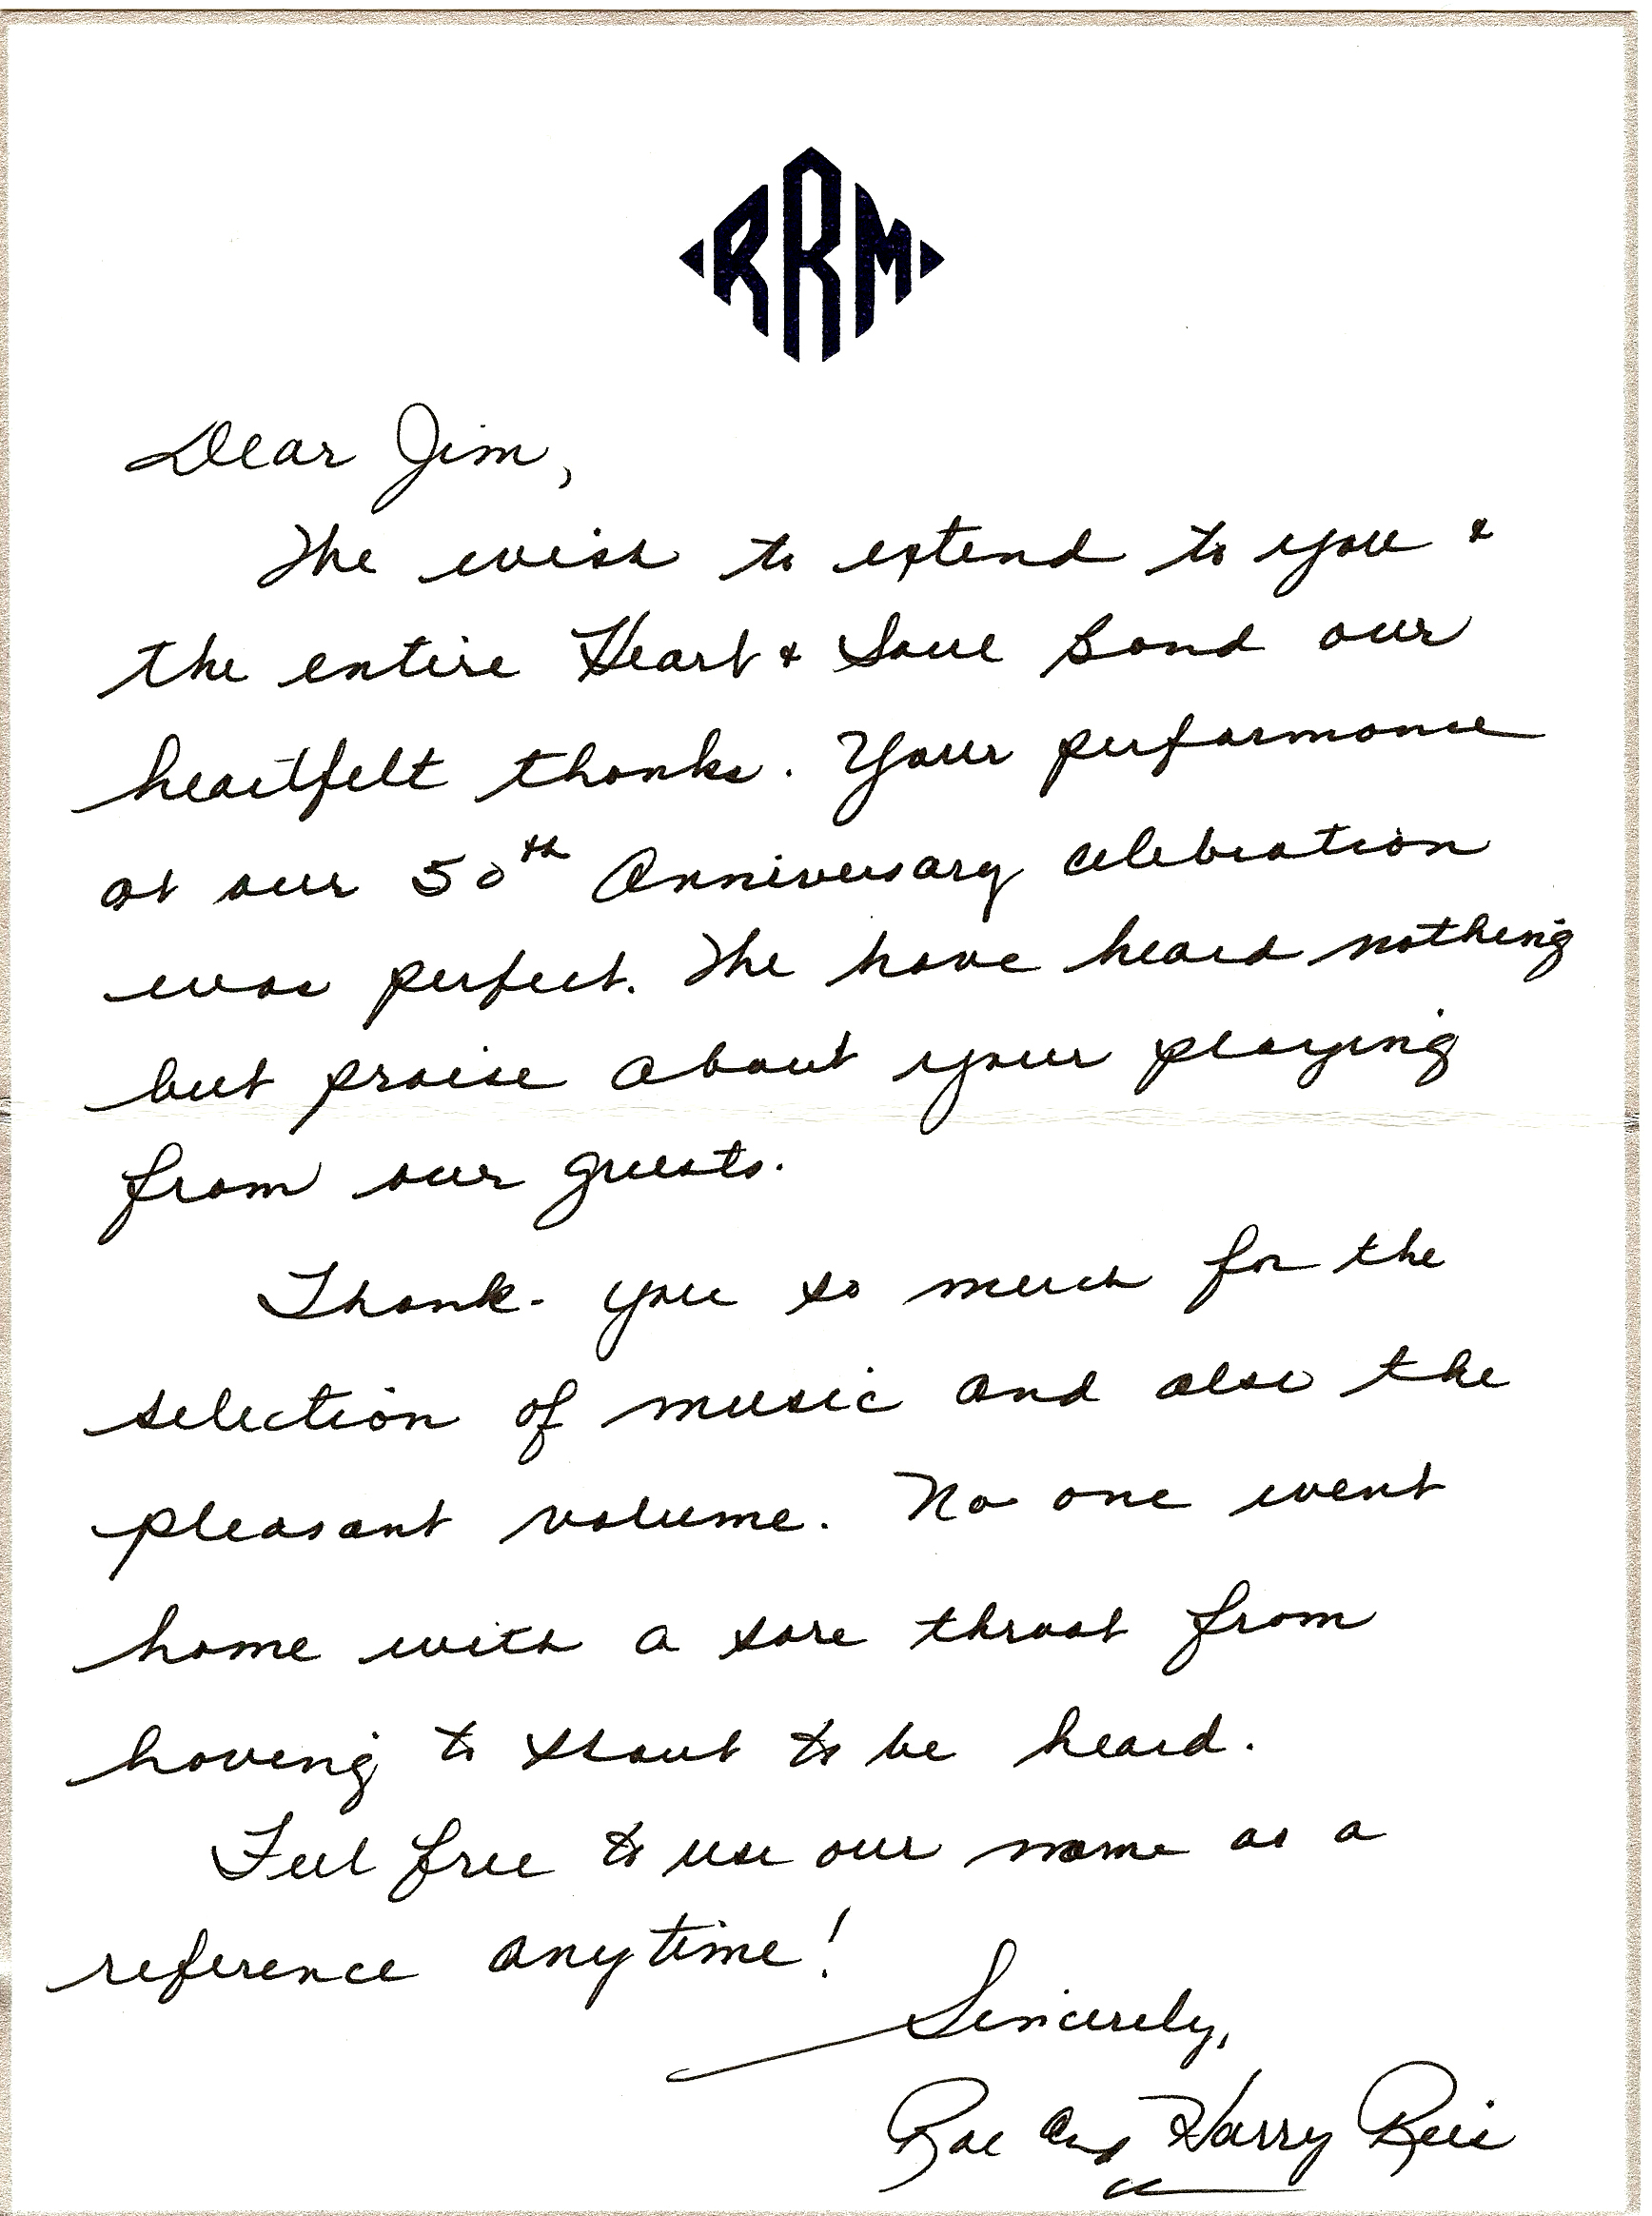 RRM
Dear Jim,
We wish to extend to you &
the entire Heart & Soul Band our
heartfelt thanks. Your performance
at our 50th Anniversary celebration
was perfect. We have heard nothing
but praise about your playing
from our guests.
Thank-you so much for the
selection of music and also the
pleasant volume. No one went
home with a sore throat from
having to shout to be heard.
Feel free to use our name as a
reference anytime!
Sincerely,
Rae and Harry